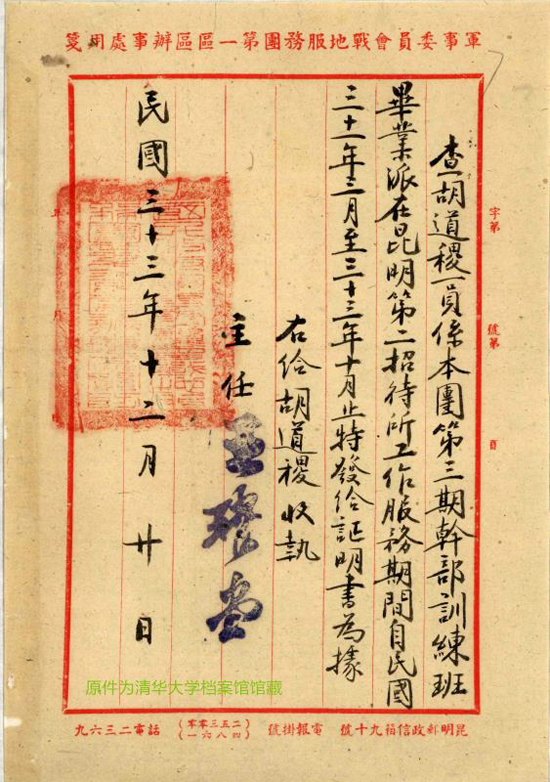 軍事委員會戰地服務團第一區區辦事處用箋
字第 號第 頁
查胡道稷一員係本團第三期幹部訓練班
畢業派在昆明第二招待所工作服務期間自民國
三十一年三月至三十三年十月止特發給証明書為據
右給胡道稷收執
主任
民國三十三年十二月廿日
原件为清华大学档案馆馆藏
昆明郵政信箱九十號 電報掛號 電話二三六九